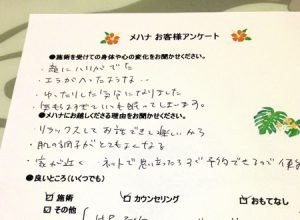 メハナ お客様アンケート
●施術を受けての身体や心の変化をお聞かせください。
・顔にハリがでた
・エラがへったような・・
・ゆったりした気分になりました
・気もちよすぎていつも眠ってしまいます。
●メハナにお越しくださる理由をお聞かせください。
・リラックスしてお話できて楽しいから
・肌の調子がとてもよくなる
・家が近く ネットで思い立ったらすぐ予約できるので便
●良いところ(いくつでも)
☑ 施術 □ カウンセリング □ おもてなし
☑ その他